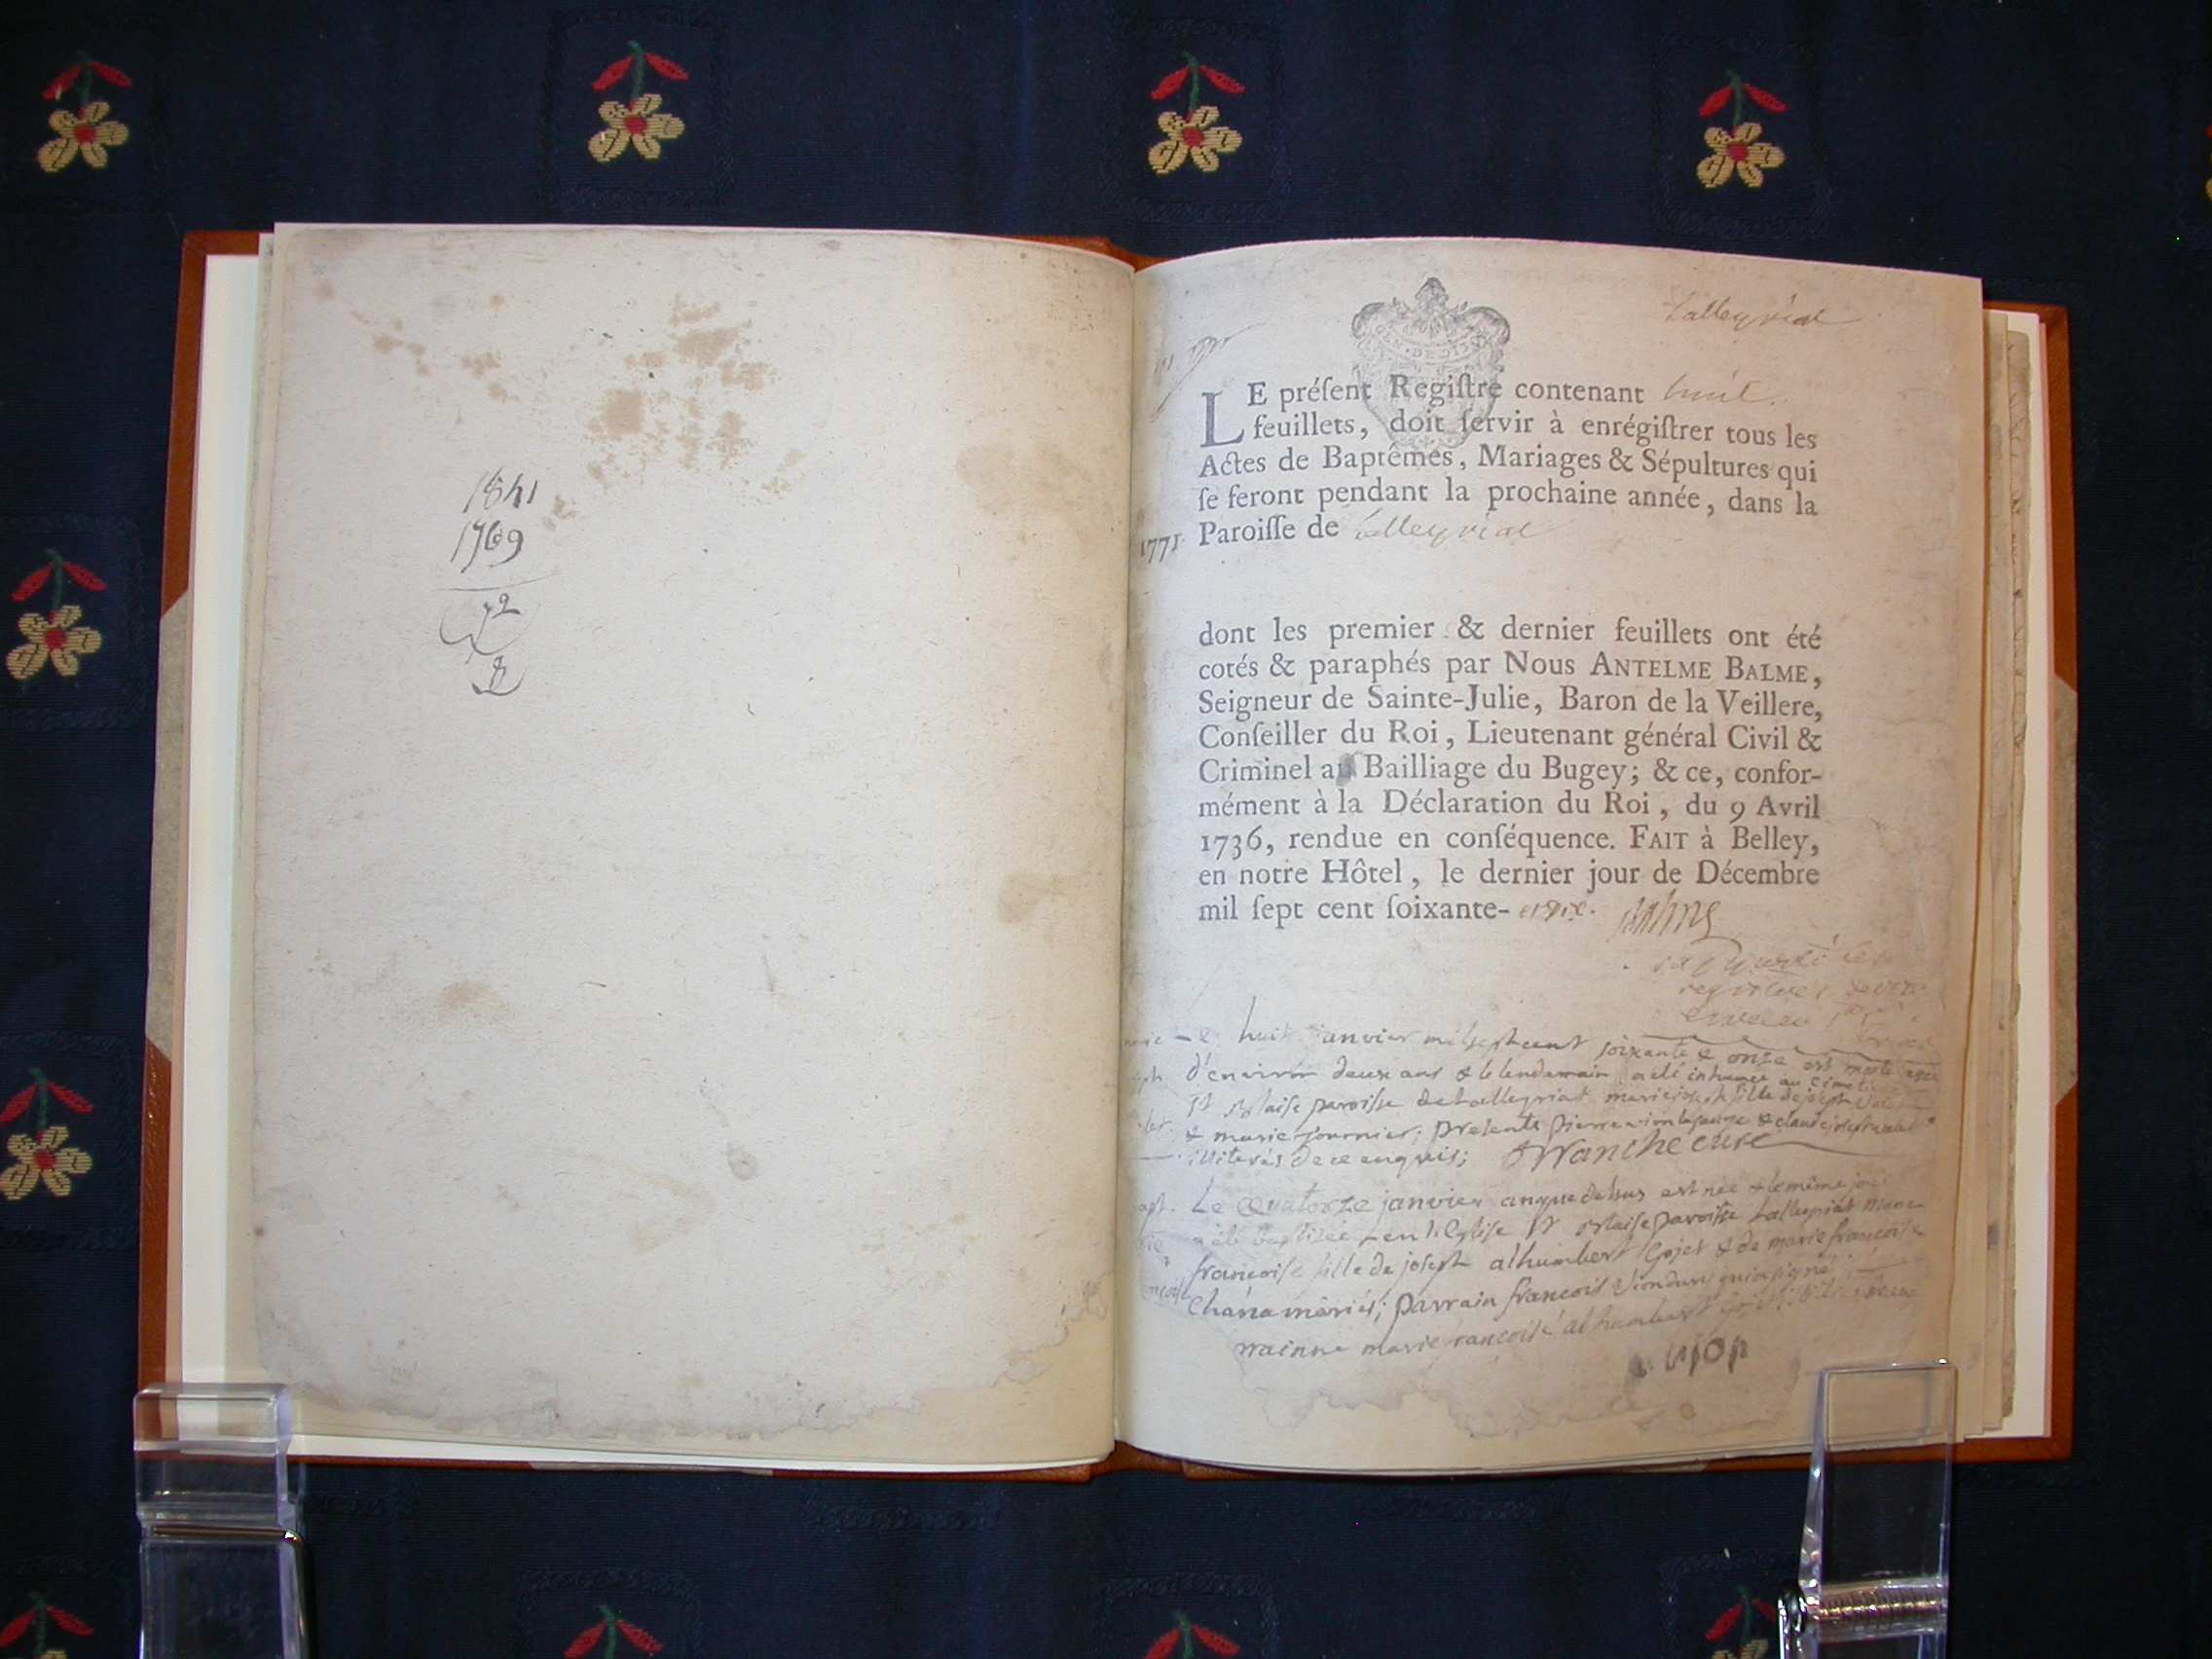 1841
1769
72
8
talleyriat
LE préſent Regiſtre contenant huit
feuillets, doit ſervir à enrégiſtrer tous les
Actes de Baptêmes, Mariages & Sépultures qui
ſe feront pendant la prochaine année, dans la
1771 Paroiſſe de talleyriat
dont les premier & dernier feuillets ont été
cotés & paraphés par Nous ANTELME BALME,
Seigneur de Sainte-Julie, Baron de la Veillere,
Conſeiller du Roi, Lieutenant général Civil &
Criminel au Bailliage du Bugey; & ce, confor-
mément à la Déclaration du Roi, du 9 Avril
1736, rendue en conſéquence. FAIT à Belley,
en notre Hôtel, le dernier jour de Décembre
mil ſept cent ſoixante- et dix. Balme
le huit janvier mil sept cent soixante & onze est morte agée
d'environ deux ans & le lendemain a été inhumée au cimeti
st Blaise paroisse de talleyriat marie fille de joseph
& marie journier; presents pierre & claude joseph
illiterés de ce enquis; curé
Le quatorze janvier an que dessus est née & le même jour
a été baptisée en l'eglise st Blaise paroisse talleyriat marie
francoise fille de joseph alhumbert gojet & de marie francoise
chana mariés; parrain francois
marie francoise alhumbert